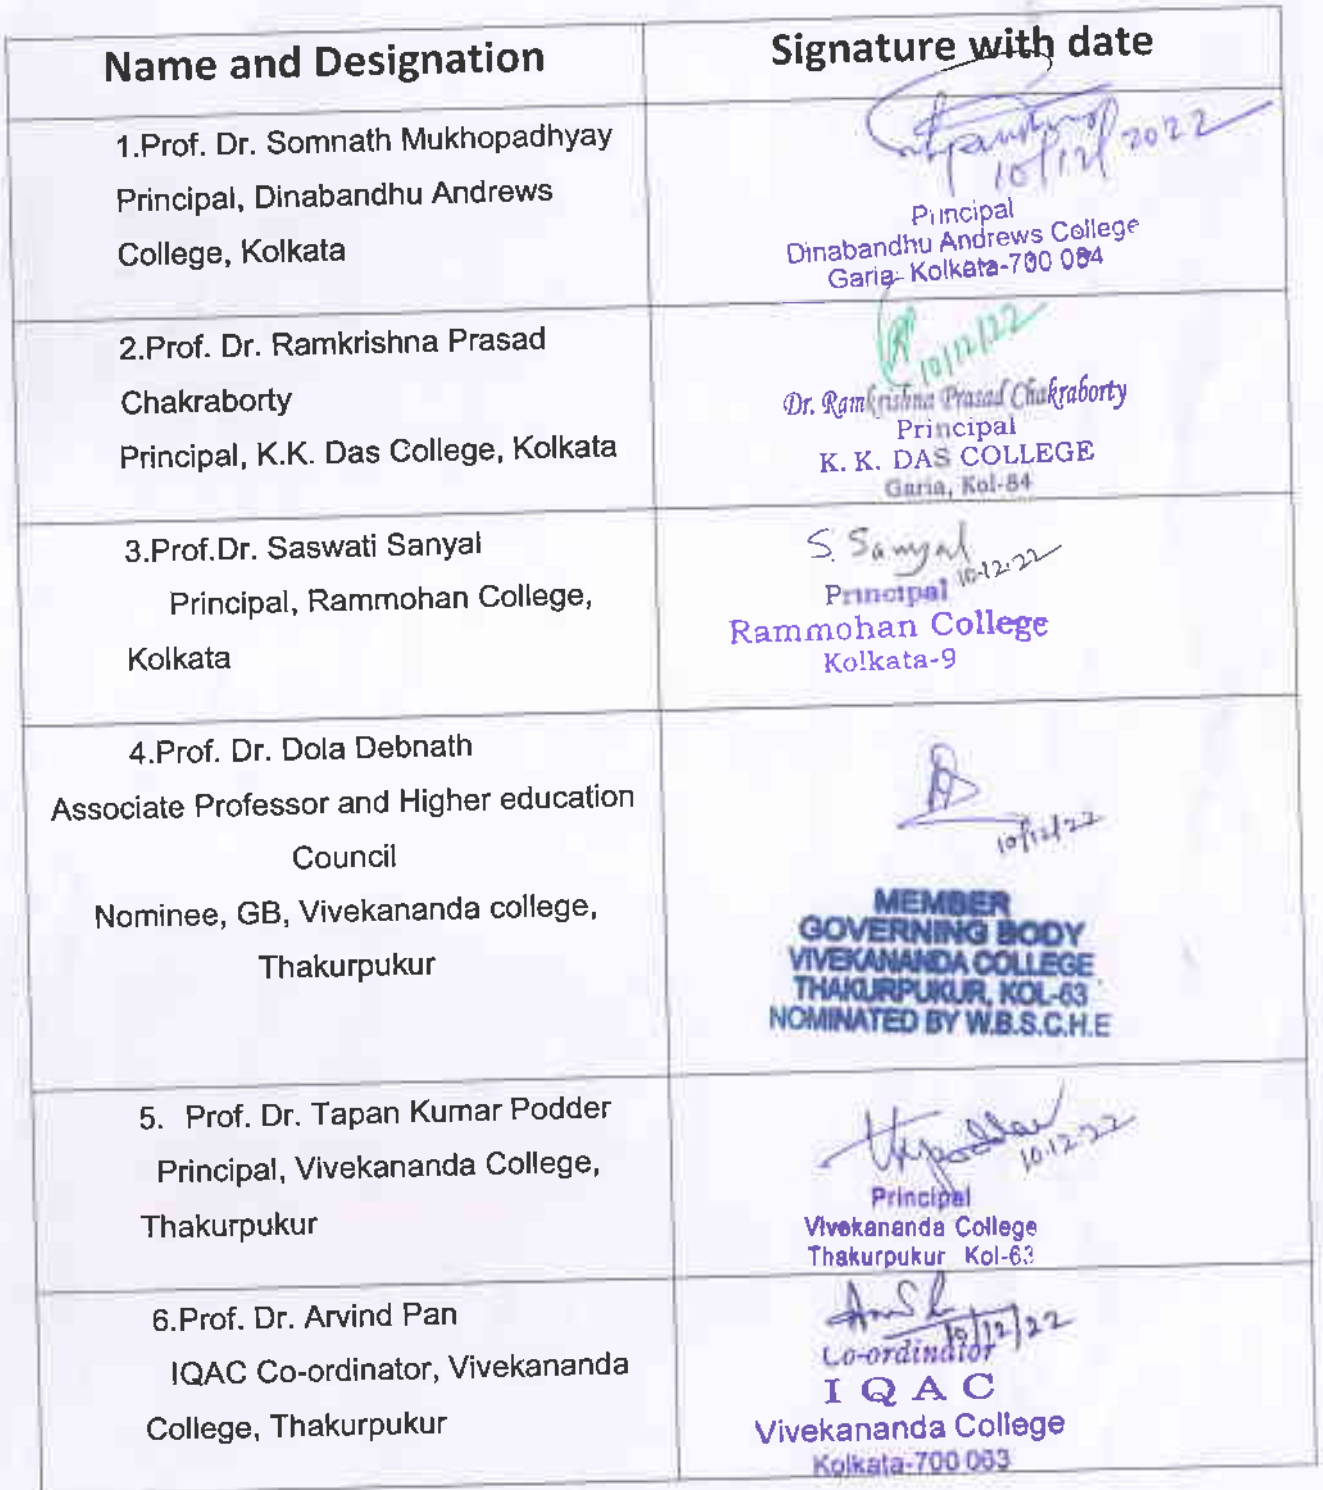 Name and Designation
Signature with date
1.Prof. Dr. Somnath Mukhopadhyay
Principal, Dinabandhu Andrews
College, Kolkata
10/12/2022
Principal
Dinabandhu Andrews College
Garia- Kolkata-700 084
2.Prof. Dr. Ramkrishna Prasad
Chakraborty
Principal, K.K. Das College, Kolkata
10/12/22
Dr. Ramkrishna Prasad Chakraborty
Principal
K. K. DAS COLLEGE
Garia, Kol-84
3.Prof.Dr. Saswati Sanyal
Principal, Rammohan College,
Kolkata
S. Sanyal
10.12.22
Principal
Rammohan College
Kolkata-9
4.Prof. Dr. Dola Debnath
Associate Professor and Higher education
Council
Nominee, GB, Vivekananda college,
Thakurpukur
10/12/22
MEMBER
GOVERNING BODY
VIVEKANANDA COLLEGE
THAKURPUKUR, KOL-63
NOMINATED BY W.B.S.C.H.E
5. Prof. Dr. Tapan Kumar Podder
Principal, Vivekananda College,
Thakurpukur
10.12.22
Principal
Vivekananda College
Thakurpukur Kol-63
6.Prof. Dr. Arvind Pan
IQAC Co-ordinator, Vivekananda
College, Thakurpukur
10/12/22
Co-ordinator
I Q A C
Vivekananda College
Kolkata-700 063